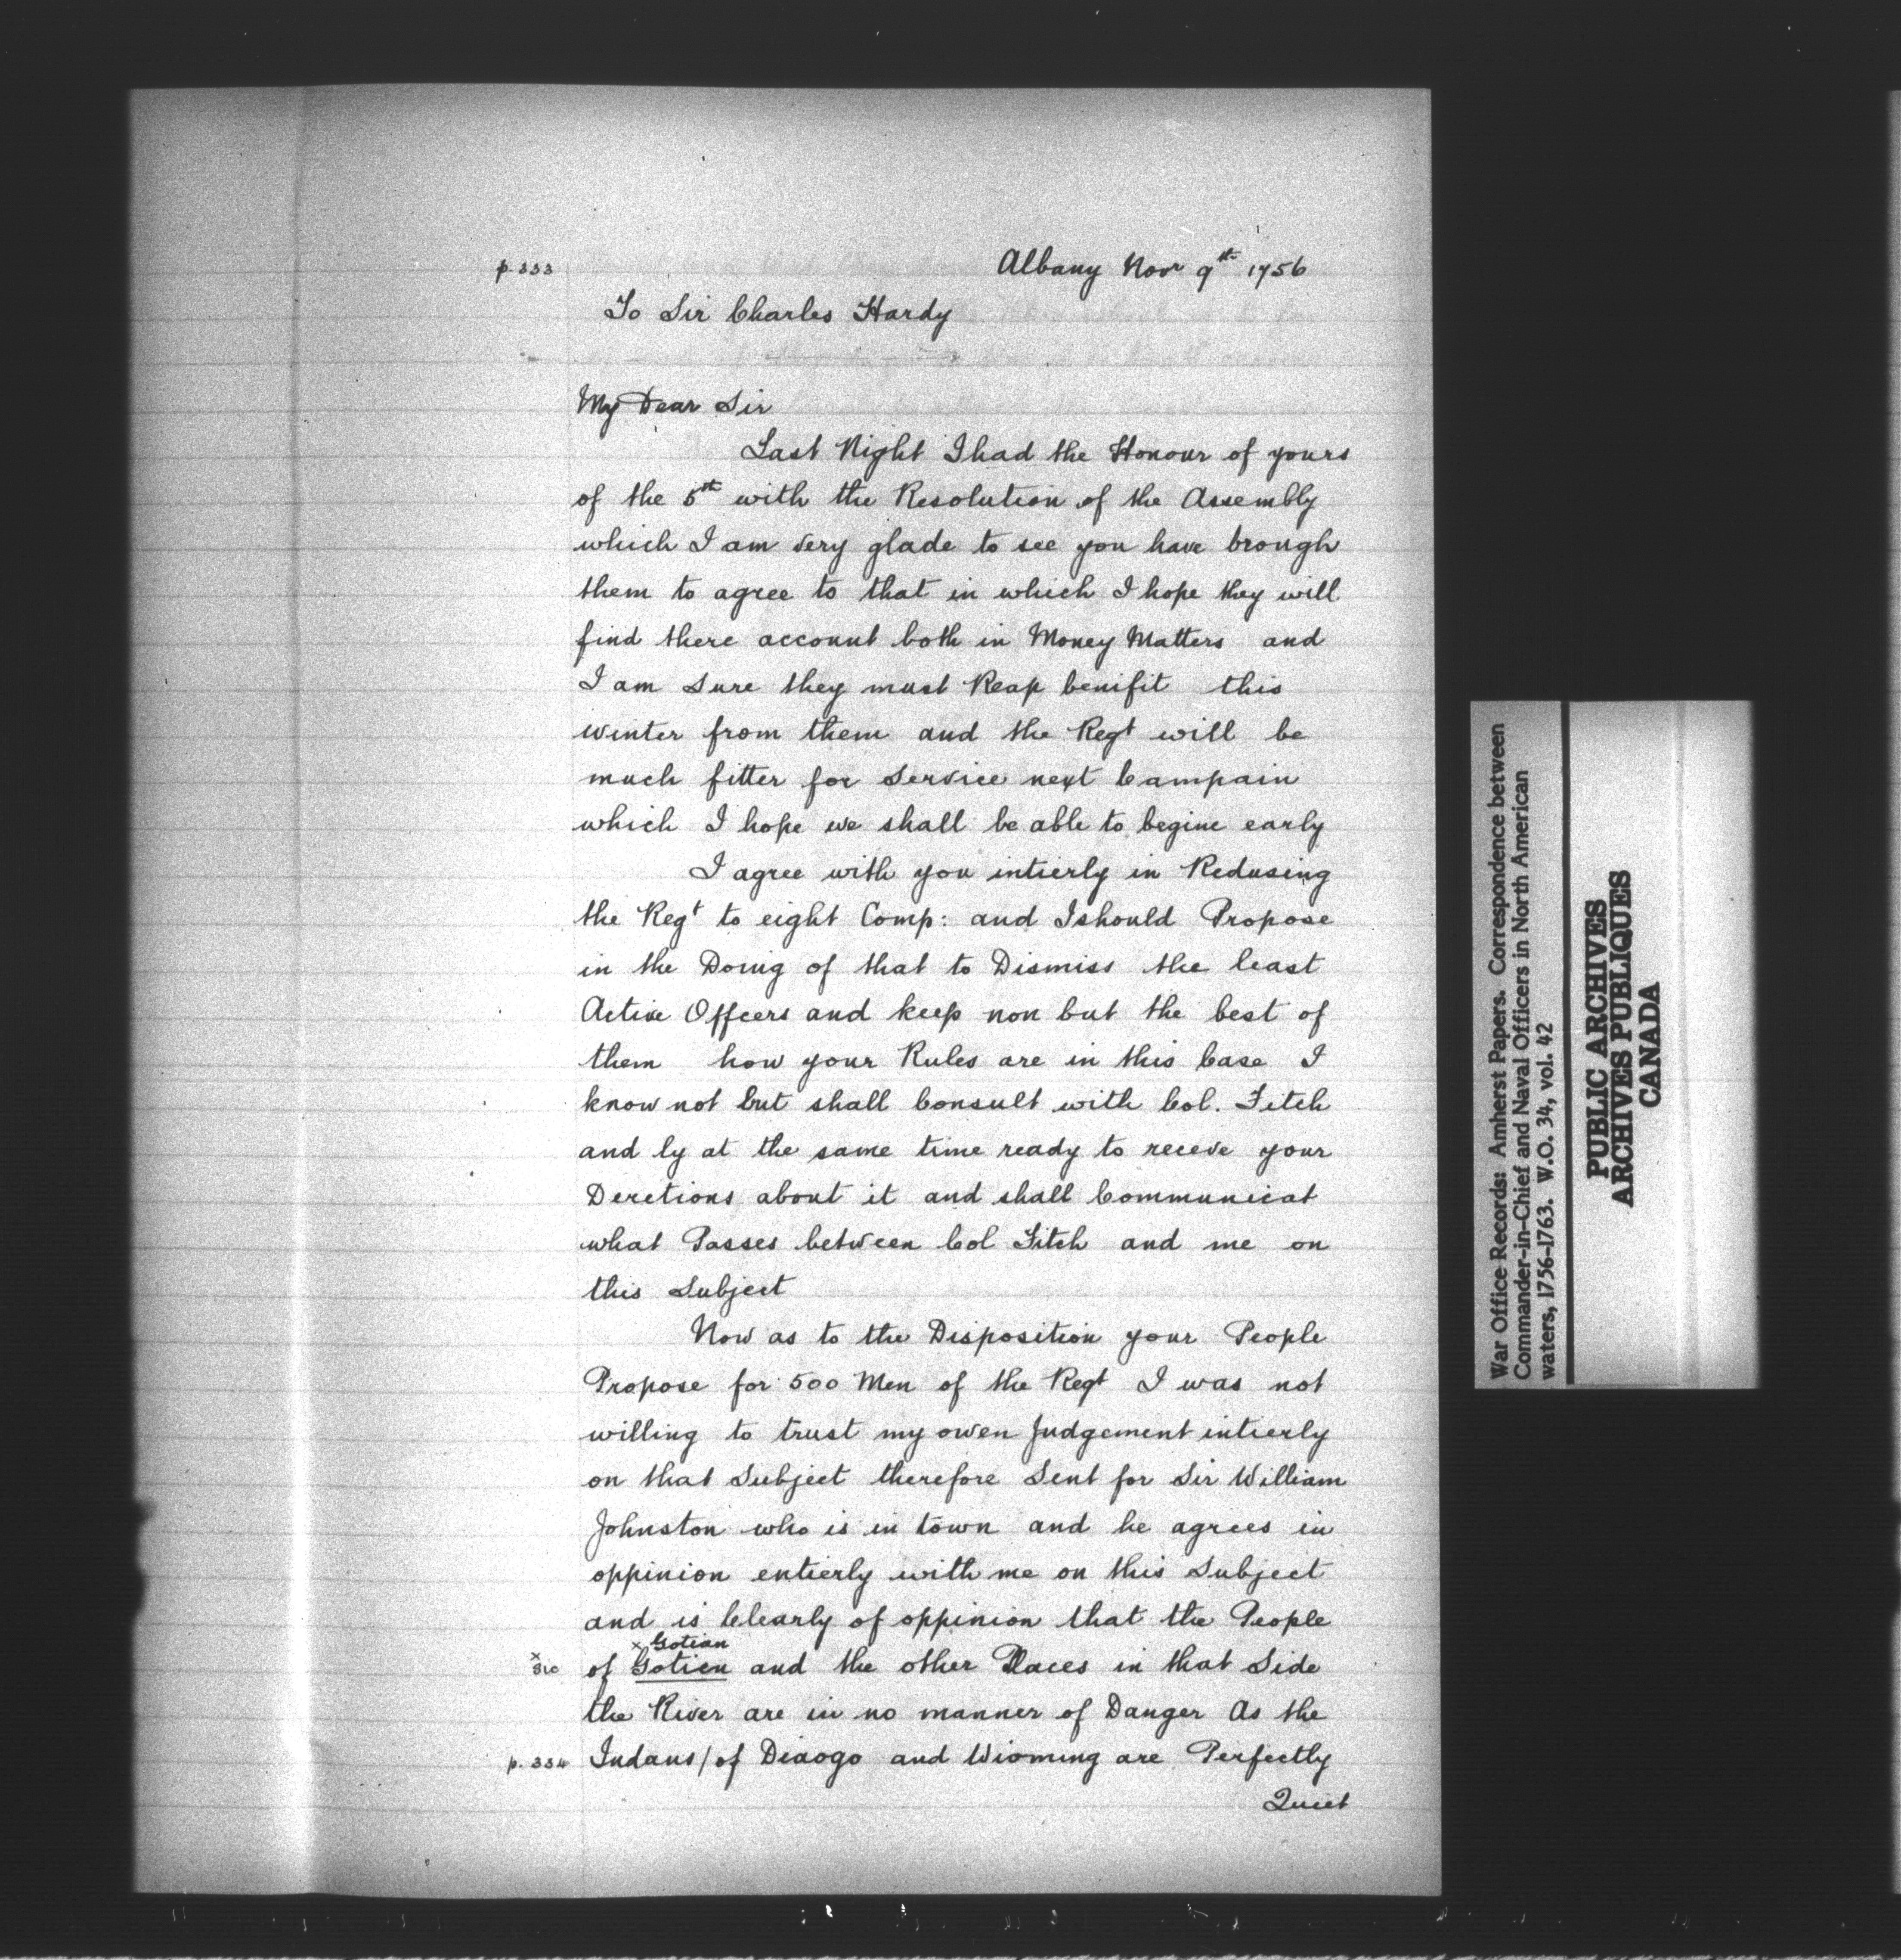 p. 333
Albany Novr 9th 1756
To Sir Charles Hardy
My Dear Sir
Last Night I had the Honour of yours
of the 5th with the Resolution of the Assembly
which I am very glade to see you have brough
them to agree to that in which I hope they will
find there account both in Money Matters and
I am sure they must Reap benifit this
winter from them and the Regt will be
much fitter for service next Campain
which I hope we shall be able to begine early
I agree with you intierly in Redusing
the Regt to eight Comp: and I should Propose
in the Doing of that to Dismiss the least
Active Offcers and keep non but the best of
them how your Rules are in this Case I
know not but shall Consult with Col. Fitch
and ly at the same time ready to receve your
Derctions about it and shall Communicat
what Passes between Col Fitch and me on
this Subject
Now as to the Disposition your People
Propose for 500 Men of the Regt I was not
willing to trust my owen Judgement intierly
on that Subject therefore Sent for Sir William
Johnston who is in town and he agrees in
oppinion entierly with me on this Subject
and is Clearly of oppinion that the People
x Gotian
x sic of Gotien and the other Places in that Side
the River are in no manner of Danger As the
p. 334 Indans/of Diaogo and Wioming are Perfectly
Quiet
War Office Records: Amherst Papers. Correspondence between
Commander-in-Chief and Naval Officers in North American
waters, 1756-1763. W.O. 34, vol. 42
PUBLIC ARCHIVES
ARCHIVES PUBLIQUES
CANADA